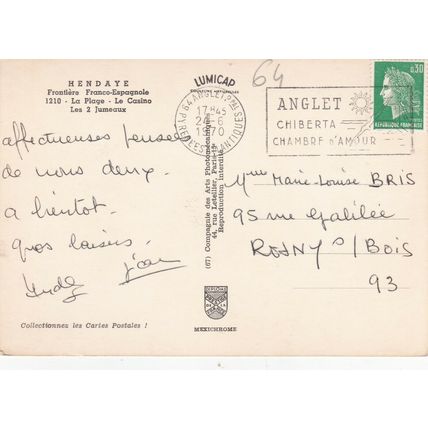 HENDAYE
Frontière Franco-Espagnole
1210 - La Plage - Le Casino
Les 2 Jumeaux
affectueuses pensées
de nous deux.
a bientot.
gros baisers.
LUMICAP
64 ANGLET Pal
17H45
24-6
1970
PYRENEES ATLANTIQUES
64
ANGLET
CHIBERTA
CHAMBRE d'AMOUR
0,30
REPUBLIQUE FRANCAISE
(67) Compagnie des Arts Photomécaniques
44, rue Letellier, Paris-15e
Reproduction interdite
Mme Marie-Louise BRIS
95 rue Galilée
ROSNY s/ BOIS
93
Collectionnez les Cartes Postales !
MEXICHROME